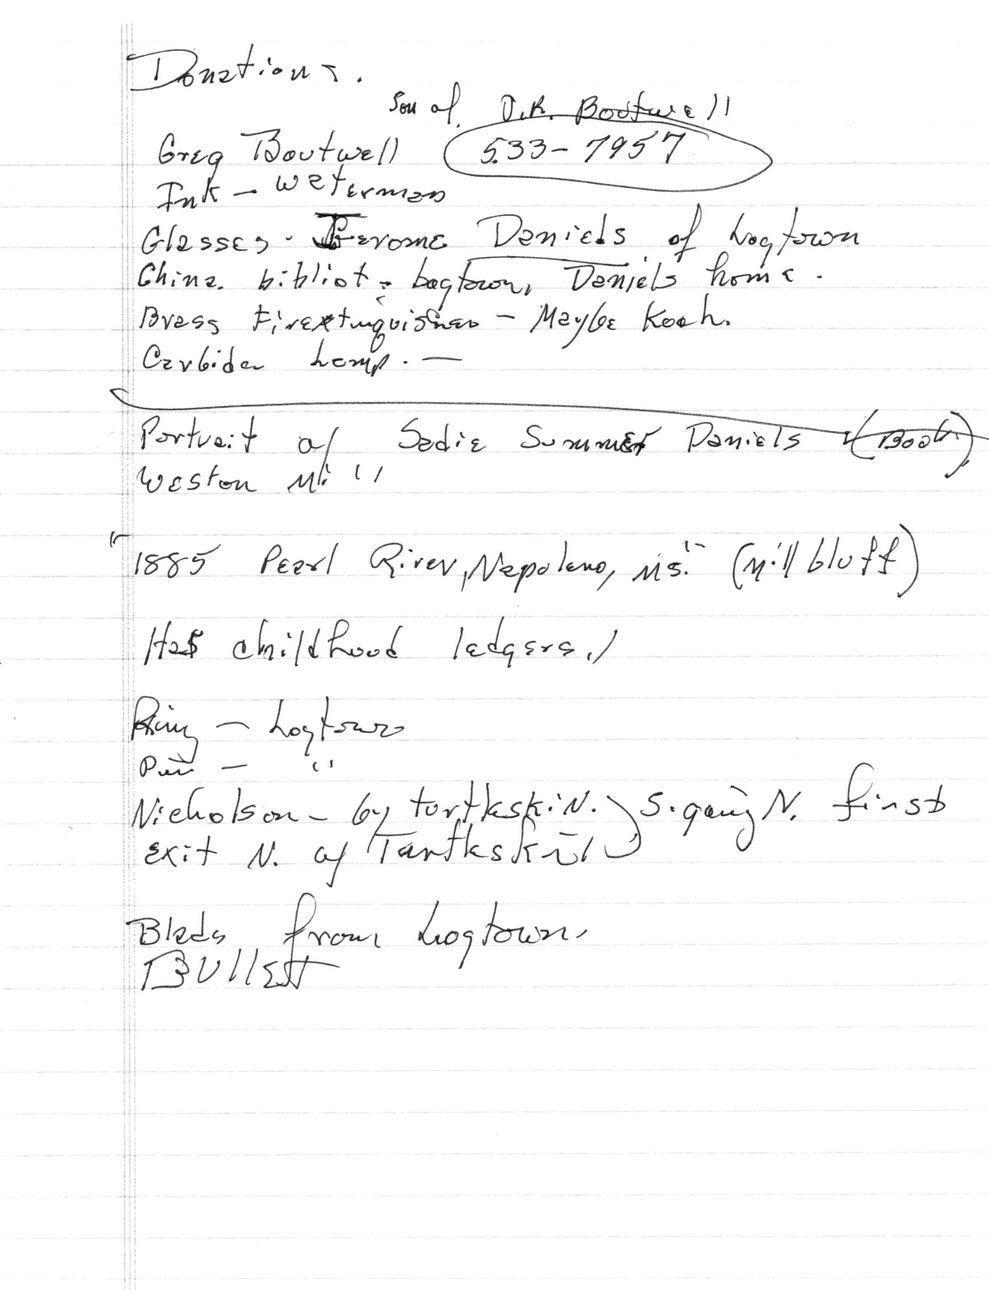 Donations.
Son of O.R. Boutwell
Greg Boutwell 533-7957
Ink - Waterman
Glasses - Jerome Daniels of Logtown
China. bibliot - Logtown, Daniels home.
Brass Firextinguisher - Maybe Koch.
Carbide Lamp. —
Portrait of Sadie Summer Daniels (Book)
Weston Mi "
"1885 Pearl River, Napoleno, Ms." (Mill bluff)
Has childhood ledgers.
Ring - Logtown
Pin - "
Nicholson - by tortkskiN. S. going N. first
exit N. of Tartkskil
Blade from Logtown.
BULLETT